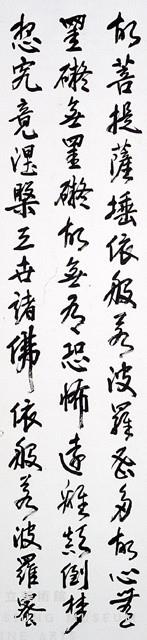 故菩提薩埵依般若波羅蜜多故心無
罣礙無罣礙故無有恐怖遠離顛倒夢
想究竟涅槃三世諸佛依般若波羅蜜